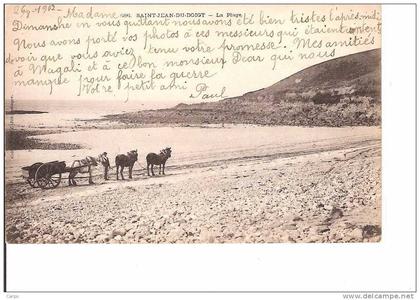 26 9-1902 Madame
SAINT-JEAN-DU-DOIGT — La Plage
Dimanche en vous quittant nous avons été bien tristes l'après-midi
Nous avons porté vos photos à ces messieurs qui étaient contents
de voir que vous aviez tenu votre promesse. Mes amitiés
à Magali et à ce bon monsieur Dear qui nous
manque pour faire la guerre
Votre petit ami
Paul